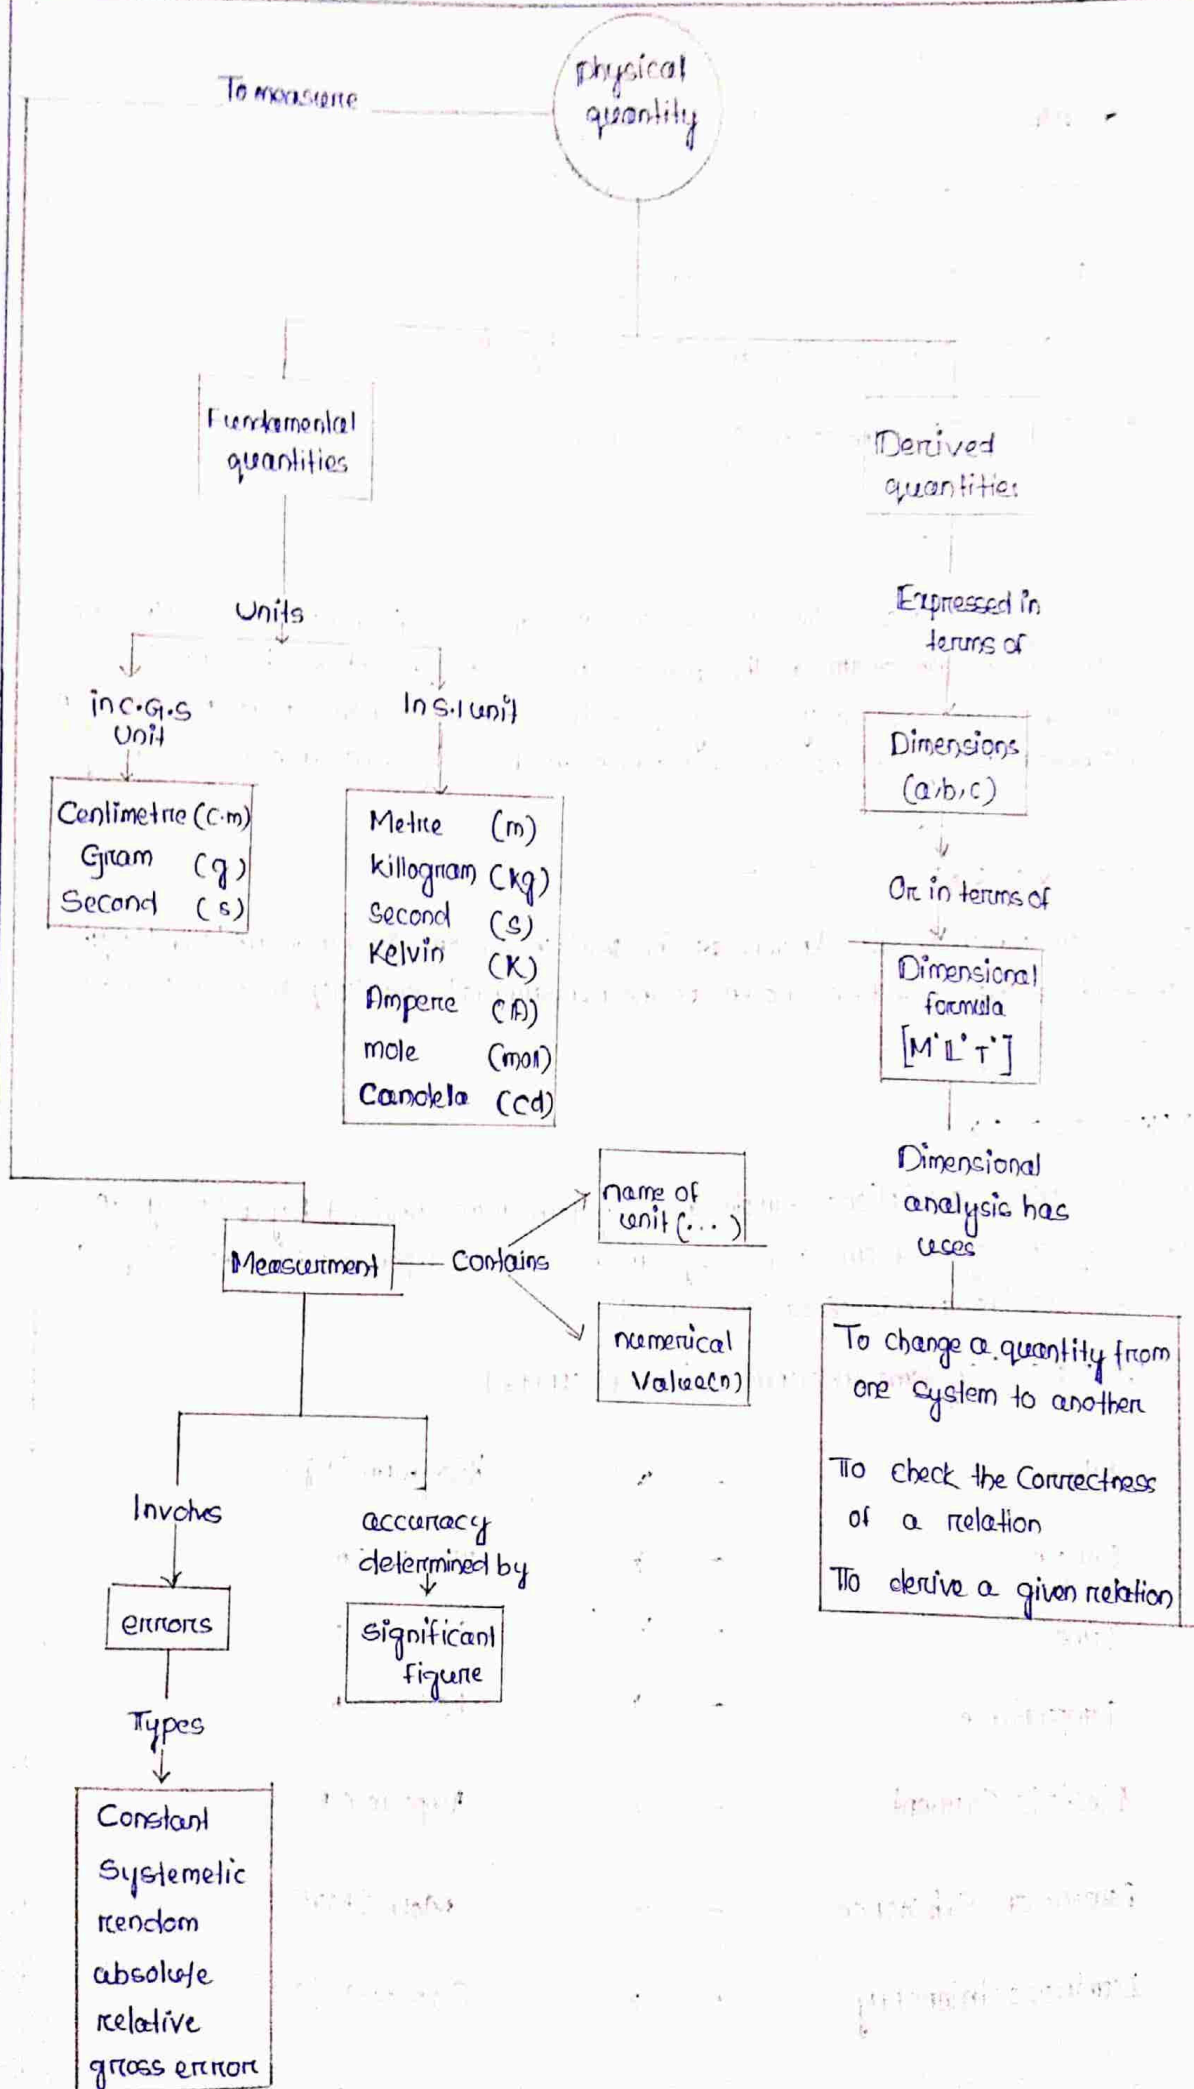 Physical
quantity
To measure
Fundamental
quantities
Units
in C.G.S
Unit
Centimetre (C.m)
Gram (g)
Second (s)
In S.I unit
Metre (m)
killogram (kg)
Second (s)
Kelvin (K)
Ampere (A)
mole (mol)
Candela (Cd)
Derived
quantities
Expressed in
terms of
Dimensions
(a,b,c)
Or in terms of
Dimensional
formula
[M L T]
Dimensional
analysis has
uses
To change a quantity from
one system to another
To check the Correctness
of a relation
To derive a given relation
Measurment
Contains
name of
unit (...)
numerical
Value(n)
Involvs
errors
Types
Constant
Systemetic
rendom
absolute
relative
gross error
accuracy
determined by
significant
figure